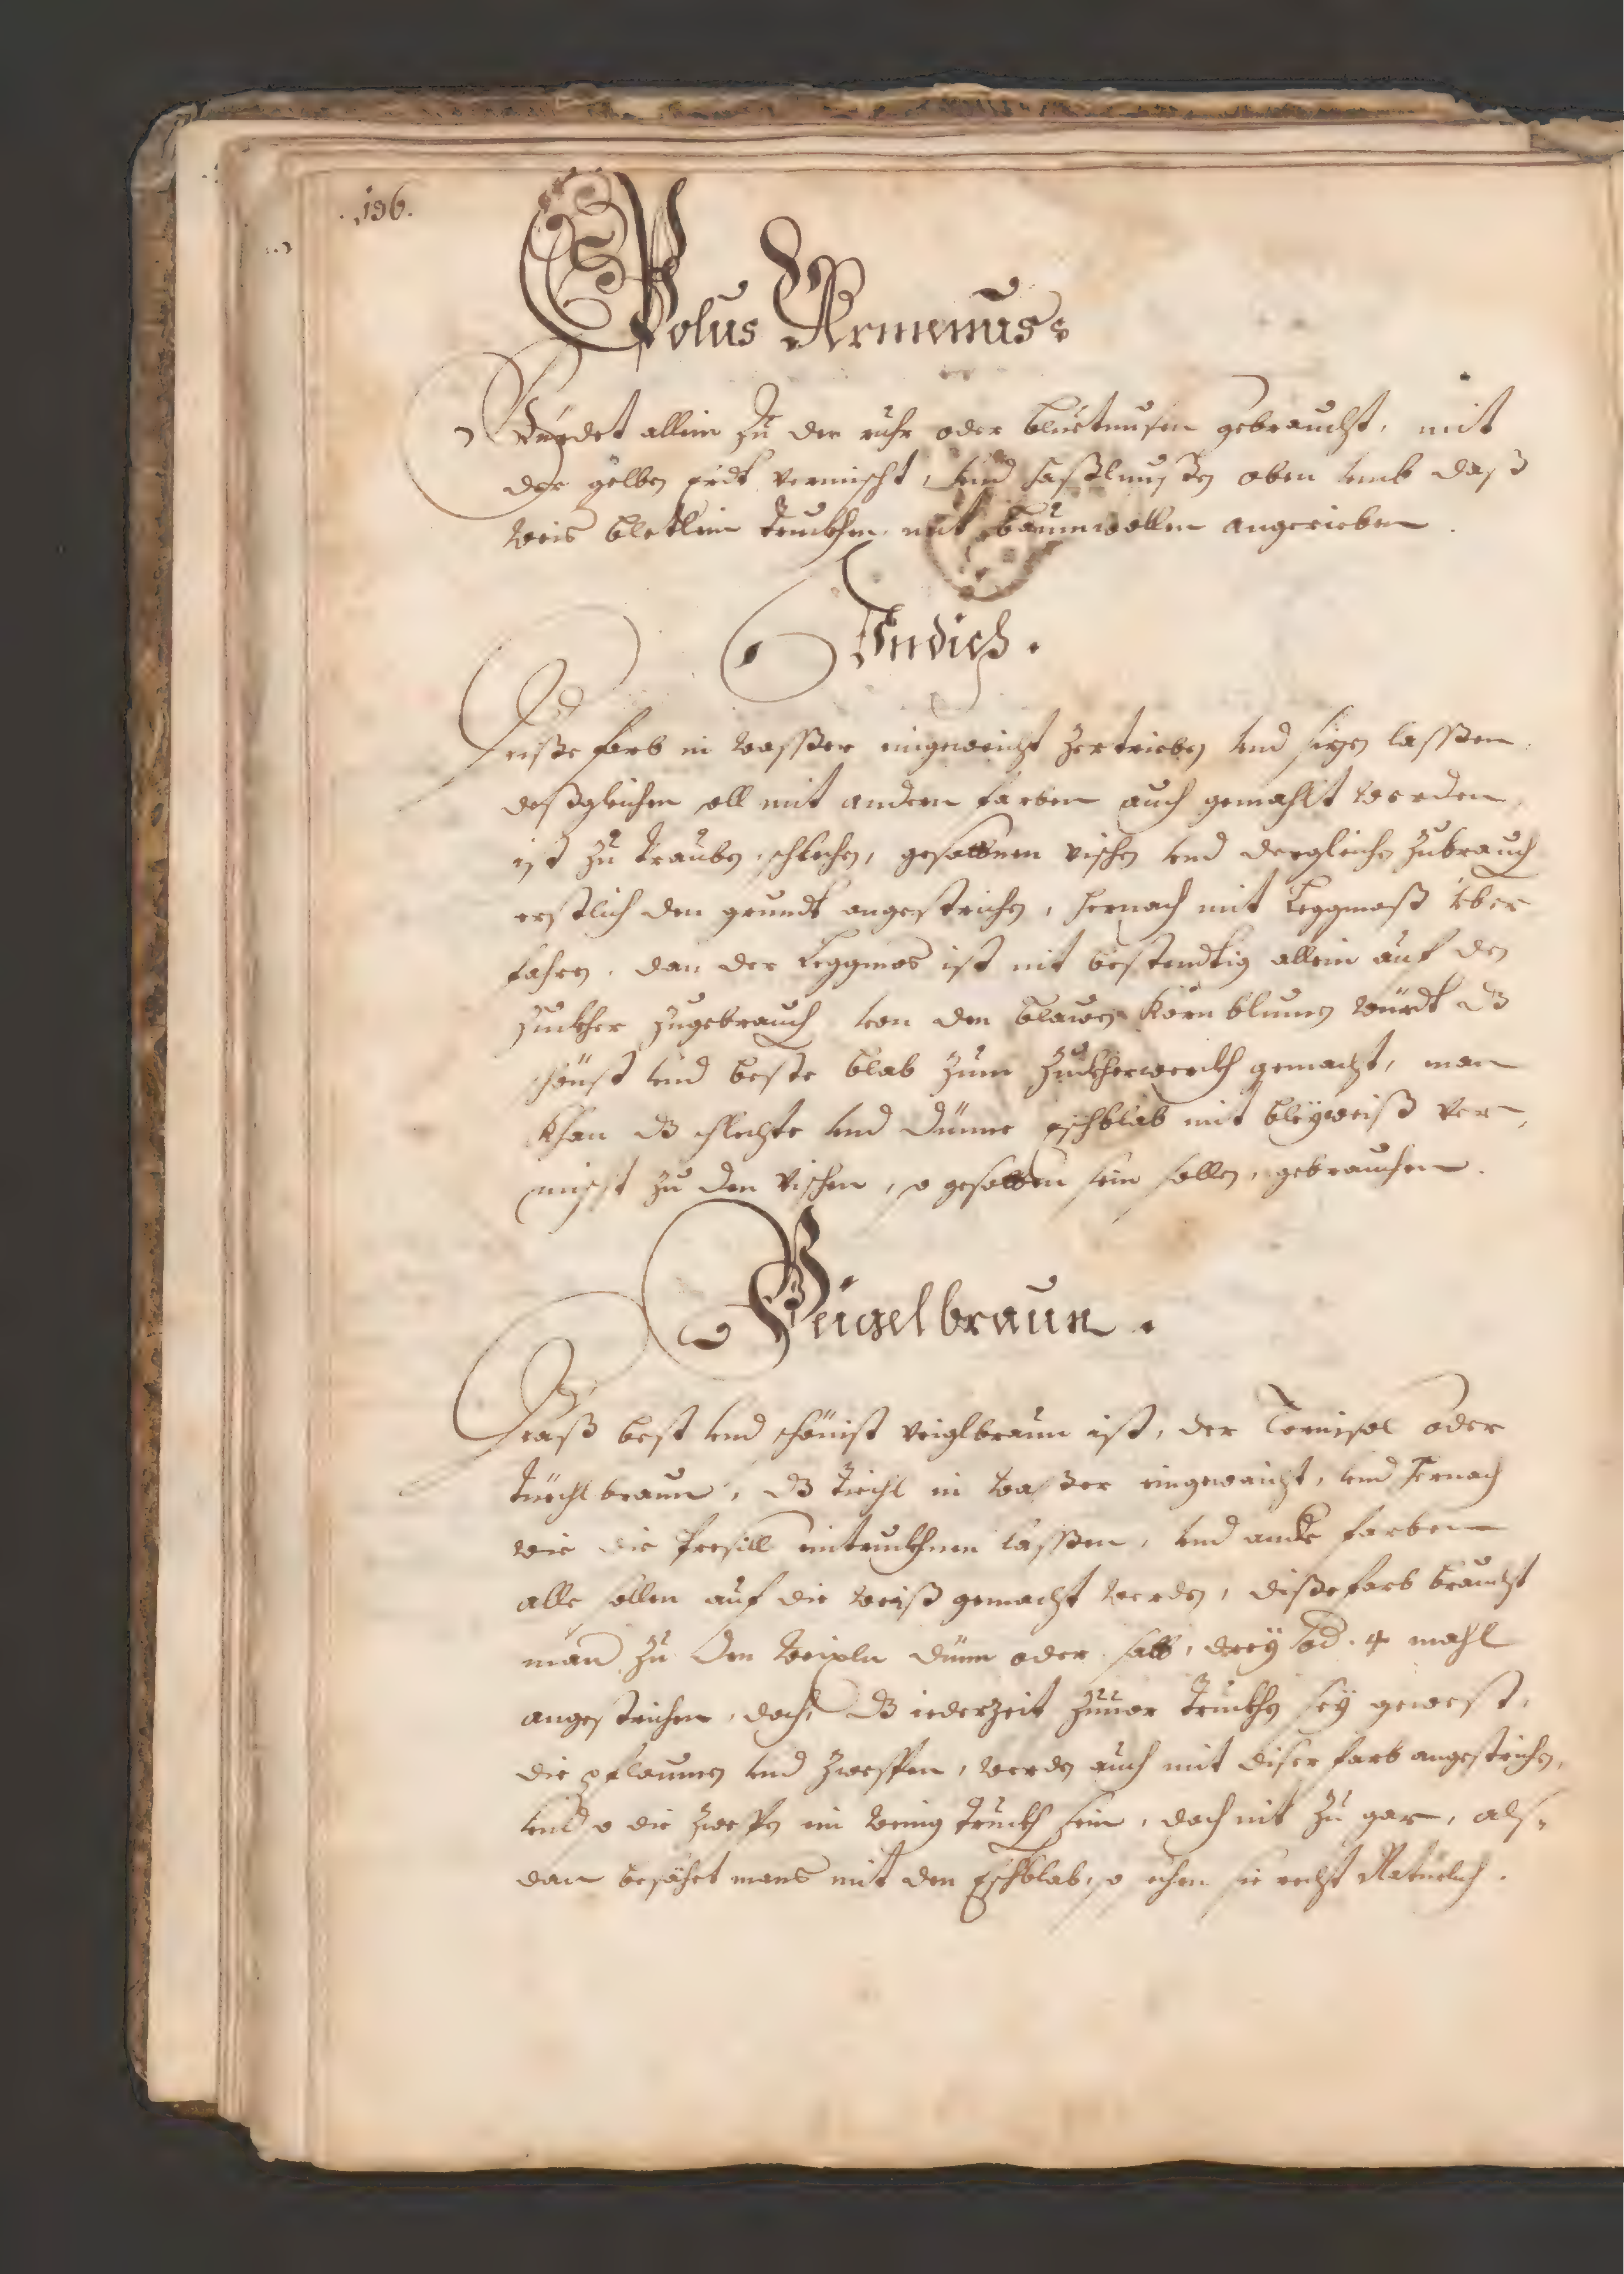 .136.
Bolus Armenus:
Würdet allein zu der ruhr oder bluetnusen gebraucht, mit
der gelben erdt vermischt, und haßlnußen oben umb daß
weis bletlein truckhen mit baumwollen angerieben.
Indich.
Diße farb in waßßer eingeweicht zertrieben und sizen laßßen.
deßgleichen soll mit andern farben auch gemahlt werden,
ist zu trauben, schlechen, gesottnen vischen und dergleichen zubrauch
erstlich den grundt angestrichen, hernach mit Leggmoß über
fahren. dan der Leggmos ist nit bestendtig allein auf den
zuckher zugebrauch von den blawen kornblumen würdt dz
schönst und beste blab zum zuckherwerckh gemacht, man
khan dz schlechte und dünne eschblab mit bleyweiß ver-
mischt zu den vischen, so gesotten sein sollen, gebrauchen.
Veigelbraun.
Daß best und schönist veiglbraun ist, der Tornisol oder
tüechl braun, dz tüechl in waßßer eingewaicht, und hernach
wie die Presill eintruckhnen laßßen, und andere farben
alle sollen auf die weiß gemacht werden, diße farb braucht
man zu den weixln dünn oder satt, drey od. 4 mahl
angestrichen, doch dz iederzeit zuuor truckhen sey gewest,
die pflaumen und zwespen, werden auch mit diser farb angestrichen,
und so die zwespen ein wenig truckh sein, doch nit zu gar, als-
dan besähet mans mit den Eschblab, so sehen sie recht Natürlich.